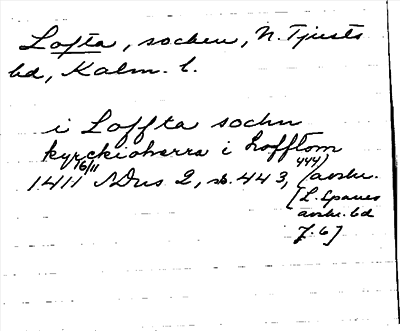 Lofta, socken, N. Tjusts
hd, Kalm. l.
i Loffta sochn
kyrckioherra i Lofftom
1411 16/11 NDus 2, s. 443, 444 (avskr.
[L. Spaues
avskr. bd
7:6]